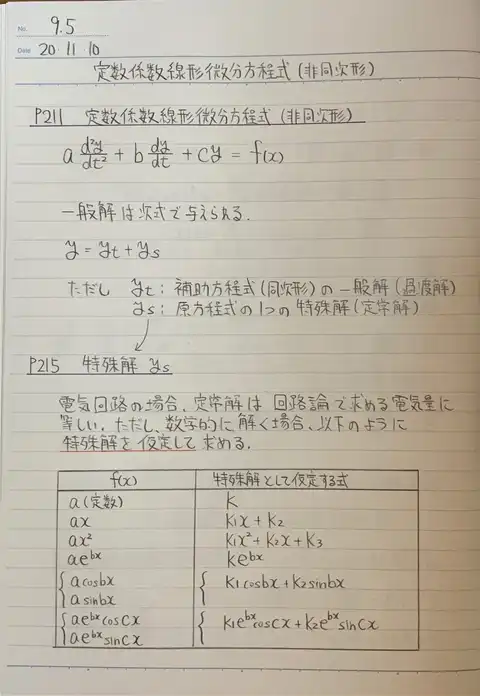 No. 9.5
Date 20・11・10
定数係数線形微分方程式(非同次形)
P211 定数係数線形微分方程式(非同次形)
a d²y/dt² + b dy/dt + cy = f(x)
一般解は次式で与えられる.
y = yt + ys
ただし yt:補助方程式(同次形)の一般解(過渡解)
ys:原方程式の1つの特殊解(定常解)
P215 特殊解 ys
電気回路の場合、定常解は回路論で求める電気量に
等しい.ただし、数学的に解く場合、以下のように
特殊解を仮定して求める.
f(x) 特殊解として仮定する式
a(定数) K
ax K₁x + K₂
ax² K₁x² + K₂x + K₃
ae^bx Ke^bx
{ a cos bx { K₁ cos bx + K₂ sin bx
a sin bx
{ ae^bx cos Cx { K₁e^bx cos Cx + K₂e^bx sin Cx
ae^bx sin Cx